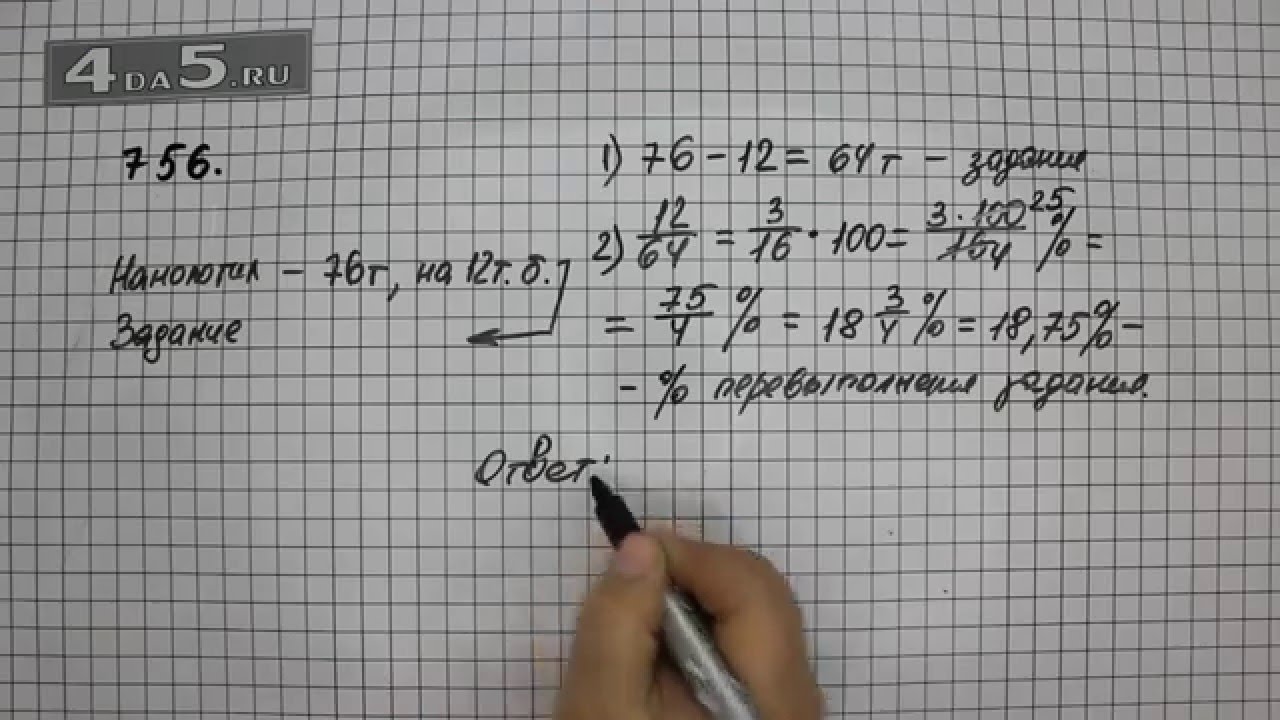 4DA5.RU
756.
Намолотил – 76т, на 12т. б.
Задание
1) 76 – 12 = 64т – задание
2) 12/64 = 3/16 · 100 = 3·100 25/16 4 % =
= 75/4 % = 18 3/4 % = 18,75% –
– % перевыполнения задания.
Ответ: